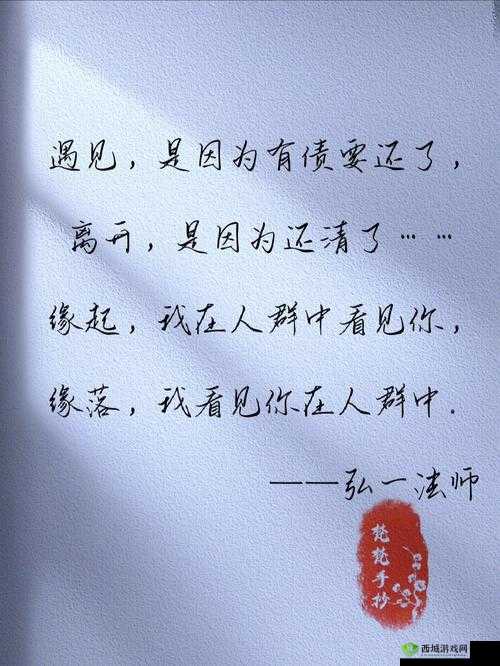 遇见，是因为有债要还了，
离开，是因为还清了……
缘起，我在人群中看见你，
缘落，我看见你在人群中.
——弘一法师
梵梵手抄
西城游戏网